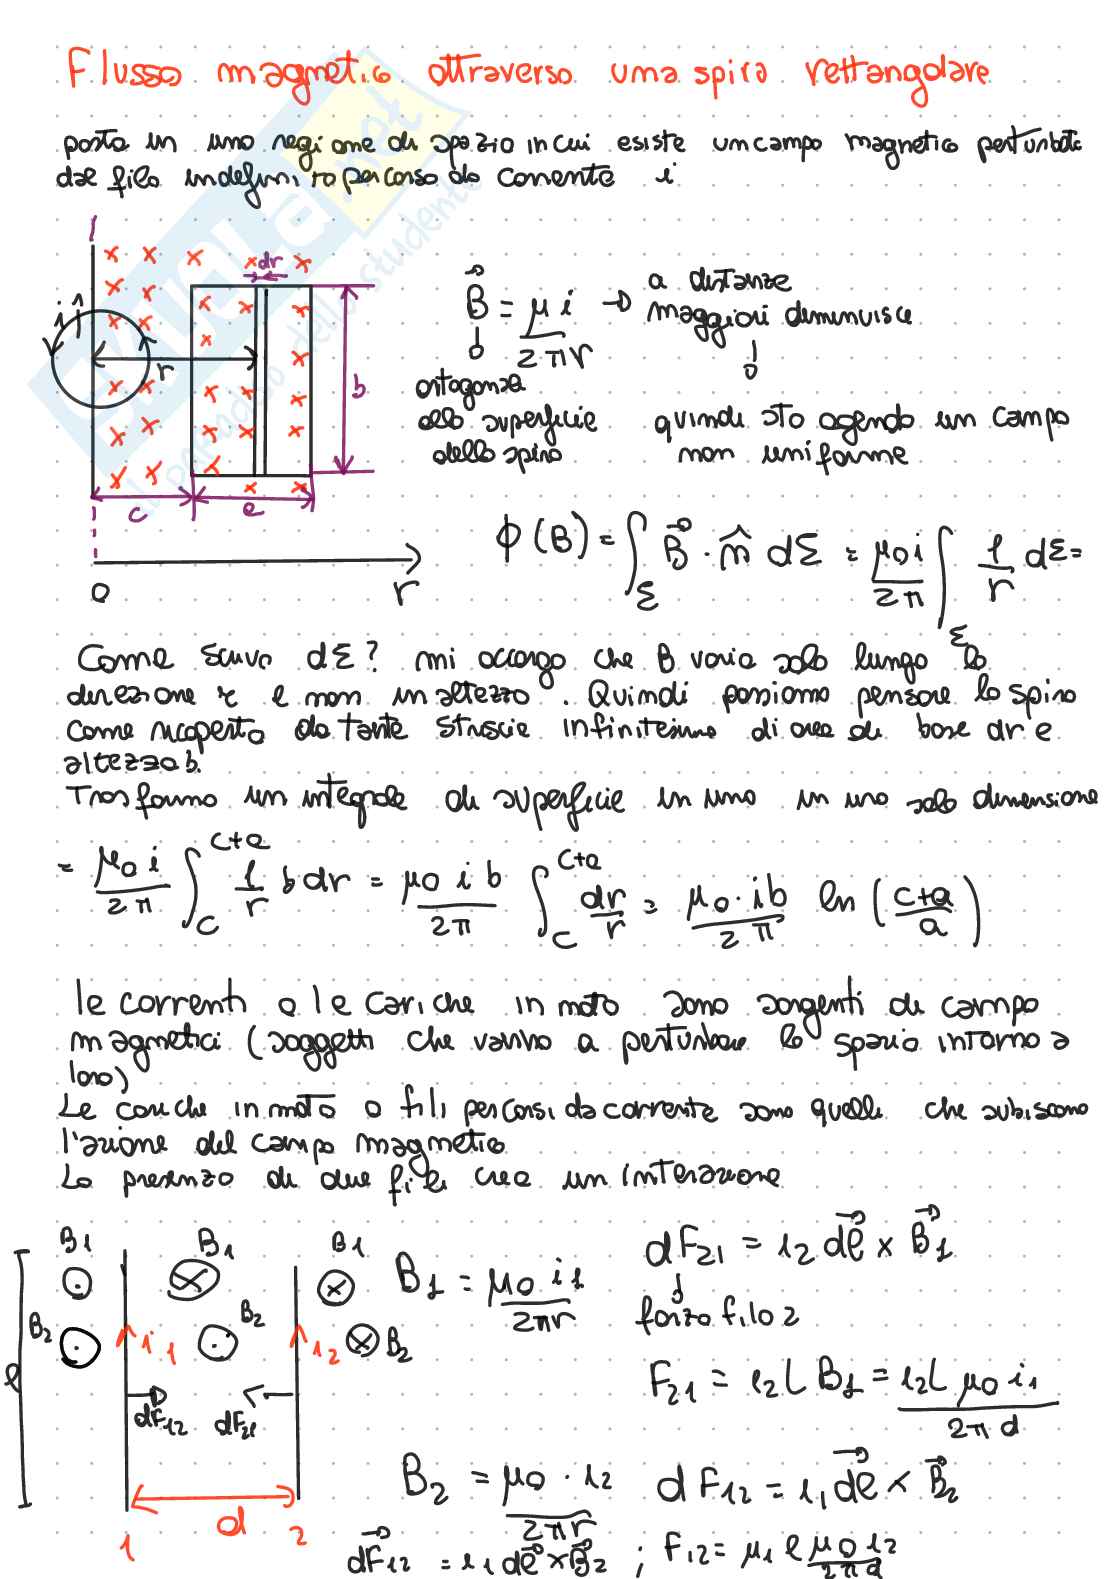 Flusso magnetico attraverso una spira rettangolare
posta in una regione di spazio in cui esiste un campo magnetico perturbato
dal filo indefinito percorso da corrente i
i
r
dr
b
c
a
0
r
B⃗ = μ i / 2πr → a distanze
maggiori diminuisce
ortogonale
alla superficie
della spira
quindi sto agendo un campo
non uniforme
ϕ(B) = ∫_Σ B⃗ · n̂ dΣ = μ0 i / 2π ∫_Σ 1/r dΣ =
Come scrivo dΣ? mi accorgo che B varia solo lungo la
direzione r e non in altezza. Quindi possiamo pensare la spira
come ricoperta da tante striscie infinitesime di area di base dr e
altezza b.
Trasformo un integrale di superficie in uno in una sola dimensione
= μ0 i / 2π ∫_c^{c+a} 1/r b dr = μ0 i b / 2π ∫_c^{c+a} dr/r = μ0 · i b / 2π ln ( (c+a)/a )
le correnti o le cariche in moto sono sorgenti di campo
magnetici (soggetti che vanno a perturbare lo spazio intorno a
loro)
Le cariche in moto o fili percorsi da corrente sono quelli che subiscono
l'azione del campo magnetico
La presenza di due fili crea un interazione
B1 B1 B1
B2 B2 B2
i1 i2
ℓ
dF12 dF21
d
1 2
B1 = μ0 i1 / 2πr
dF21 = i2 dℓ⃗ × B⃗1
forza filo 2
F21 = i2 L B1 = i2 L μ0 i1 / 2π d
B2 = μ0 · i2 / 2πr
dF12 = i1 dℓ⃗ × B⃗2
dF⃗12 = i1 dℓ⃗ × B⃗2 ; F12 = μ1 ℓ μ0 i2 / 2πd